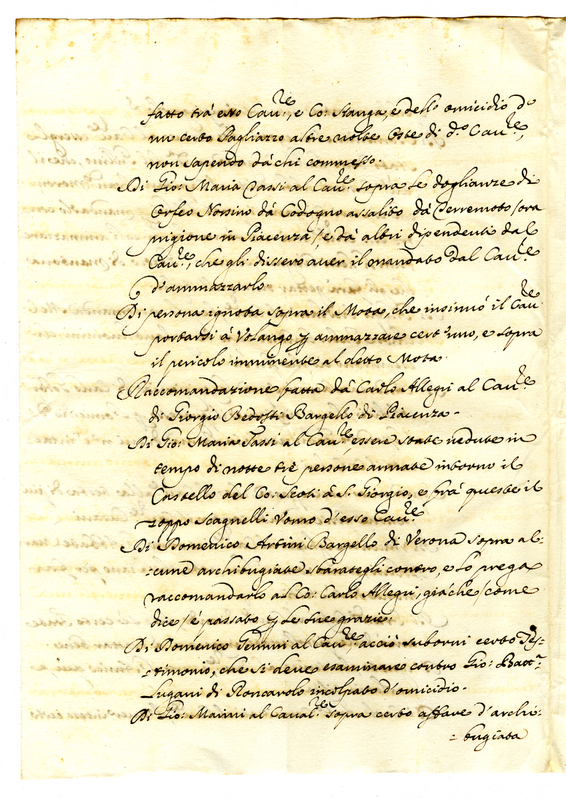 fatto trà esso Cau.re, e Co: Stanga, e dell'omicidio d'
un certo Pagliazzo altre uolte Oste di d.o Cau.re,
non sapendo dà chi commesso.
Di Gio: Maria Tassi al Cau.re sopra le doglianze di
Orfeo Nossino dà Codogno assalito dà Terremoto / ora
prigione in Piacenza / e dà altri dipendenti dal
Cau.re, che gli dissero auer il mandato dal Cau.re
d'ammazzarlo
Di persona ignota sopra il Mota, che insinuò il Cau.re
portarsi à Volango p ammazzare cert'uno, e sopra
il pericolo imminente al detto Mota.
Raccomandazione fatta dà Carlo Allegri al Cau.re
di Giorgio Bedosti Bargello di Piacenza.
Di Gio: Maria Tassi al Cau.re essere state uedute in
tempo di notte trè persone armate intorno il
Castello del Co: Scoti à S. Giorgio, e frà queste il
zoppo Scagnelli Uomo d'esso Cau.re
Di Domenico Artini Bargello di Verona sopra al:
:cune archibugiate sbarategli contro, e lo prega
raccomandarlo al Co: Carlo Allegri, giàche / come
dice / è passato p le sue grazie.
Di Domenico al Cau.re acciò suborni certo Tes:
:timonio, che si deue esaminare contro Gio: Batt.a
Lugani di Roncarolo incolpato d'omicidio.
Di Gio: Marini al Caual.re sopra certo affare d'archi:
:bugiata